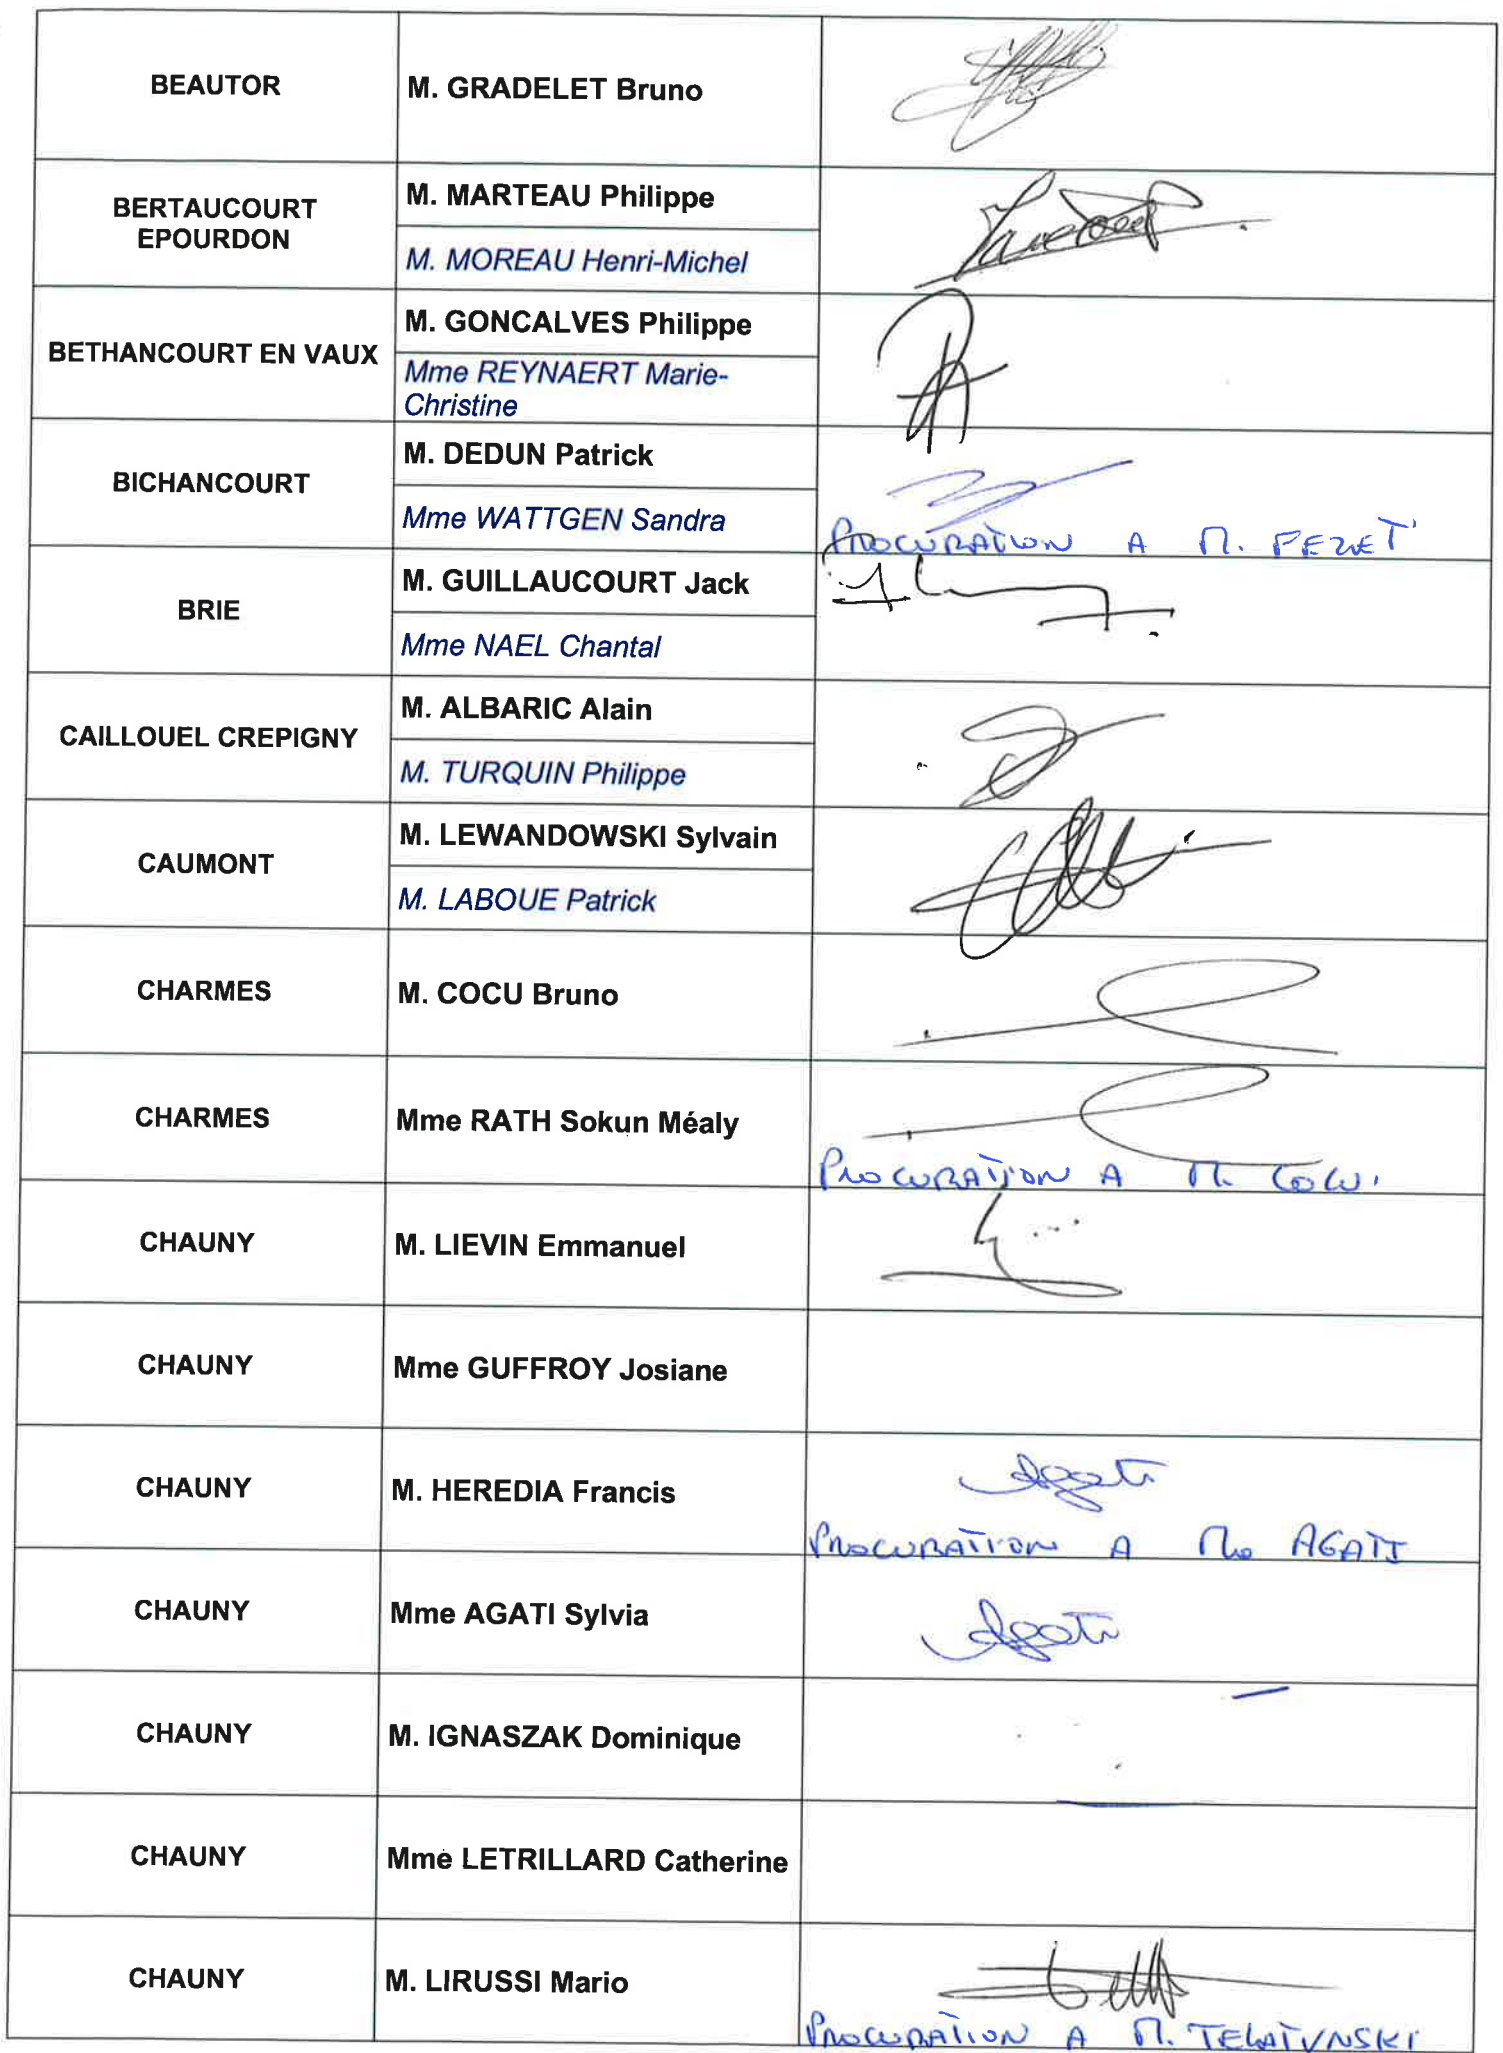 BEAUTOR
M. GRADELET Bruno
BERTAUCOURT
EPOURDON
M. MARTEAU Philippe
M. MOREAU Henri-Michel
BETHANCOURT EN VAUX
M. GONCALVES Philippe
Mme REYNAERT Marie-
Christine
BICHANCOURT
M. DEDUN Patrick
Mme WATTGEN Sandra
PROCURATION A M.
BRIE
M. GUILLAUCOURT Jack
Mme NAEL Chantal
CAILLOUEL CREPIGNY
M. ALBARIC Alain
M. TURQUIN Philippe
CAUMONT
M. LEWANDOWSKI Sylvain
M. LABOUE Patrick
CHARMES
M. COCU Bruno
CHARMES
Mme RATH Sokun Méaly
PROCURATION A M. COCU.
CHAUNY
M. LIEVIN Emmanuel
CHAUNY
Mme GUFFROY Josiane
CHAUNY
M. HEREDIA Francis
Agati
PROCURATION A Me AGATI
CHAUNY
Mme AGATI Sylvia
Agati
CHAUNY
M. IGNASZAK Dominique
CHAUNY
Mme LETRILLARD Catherine
CHAUNY
M. LIRUSSI Mario
PROCURATION A M.